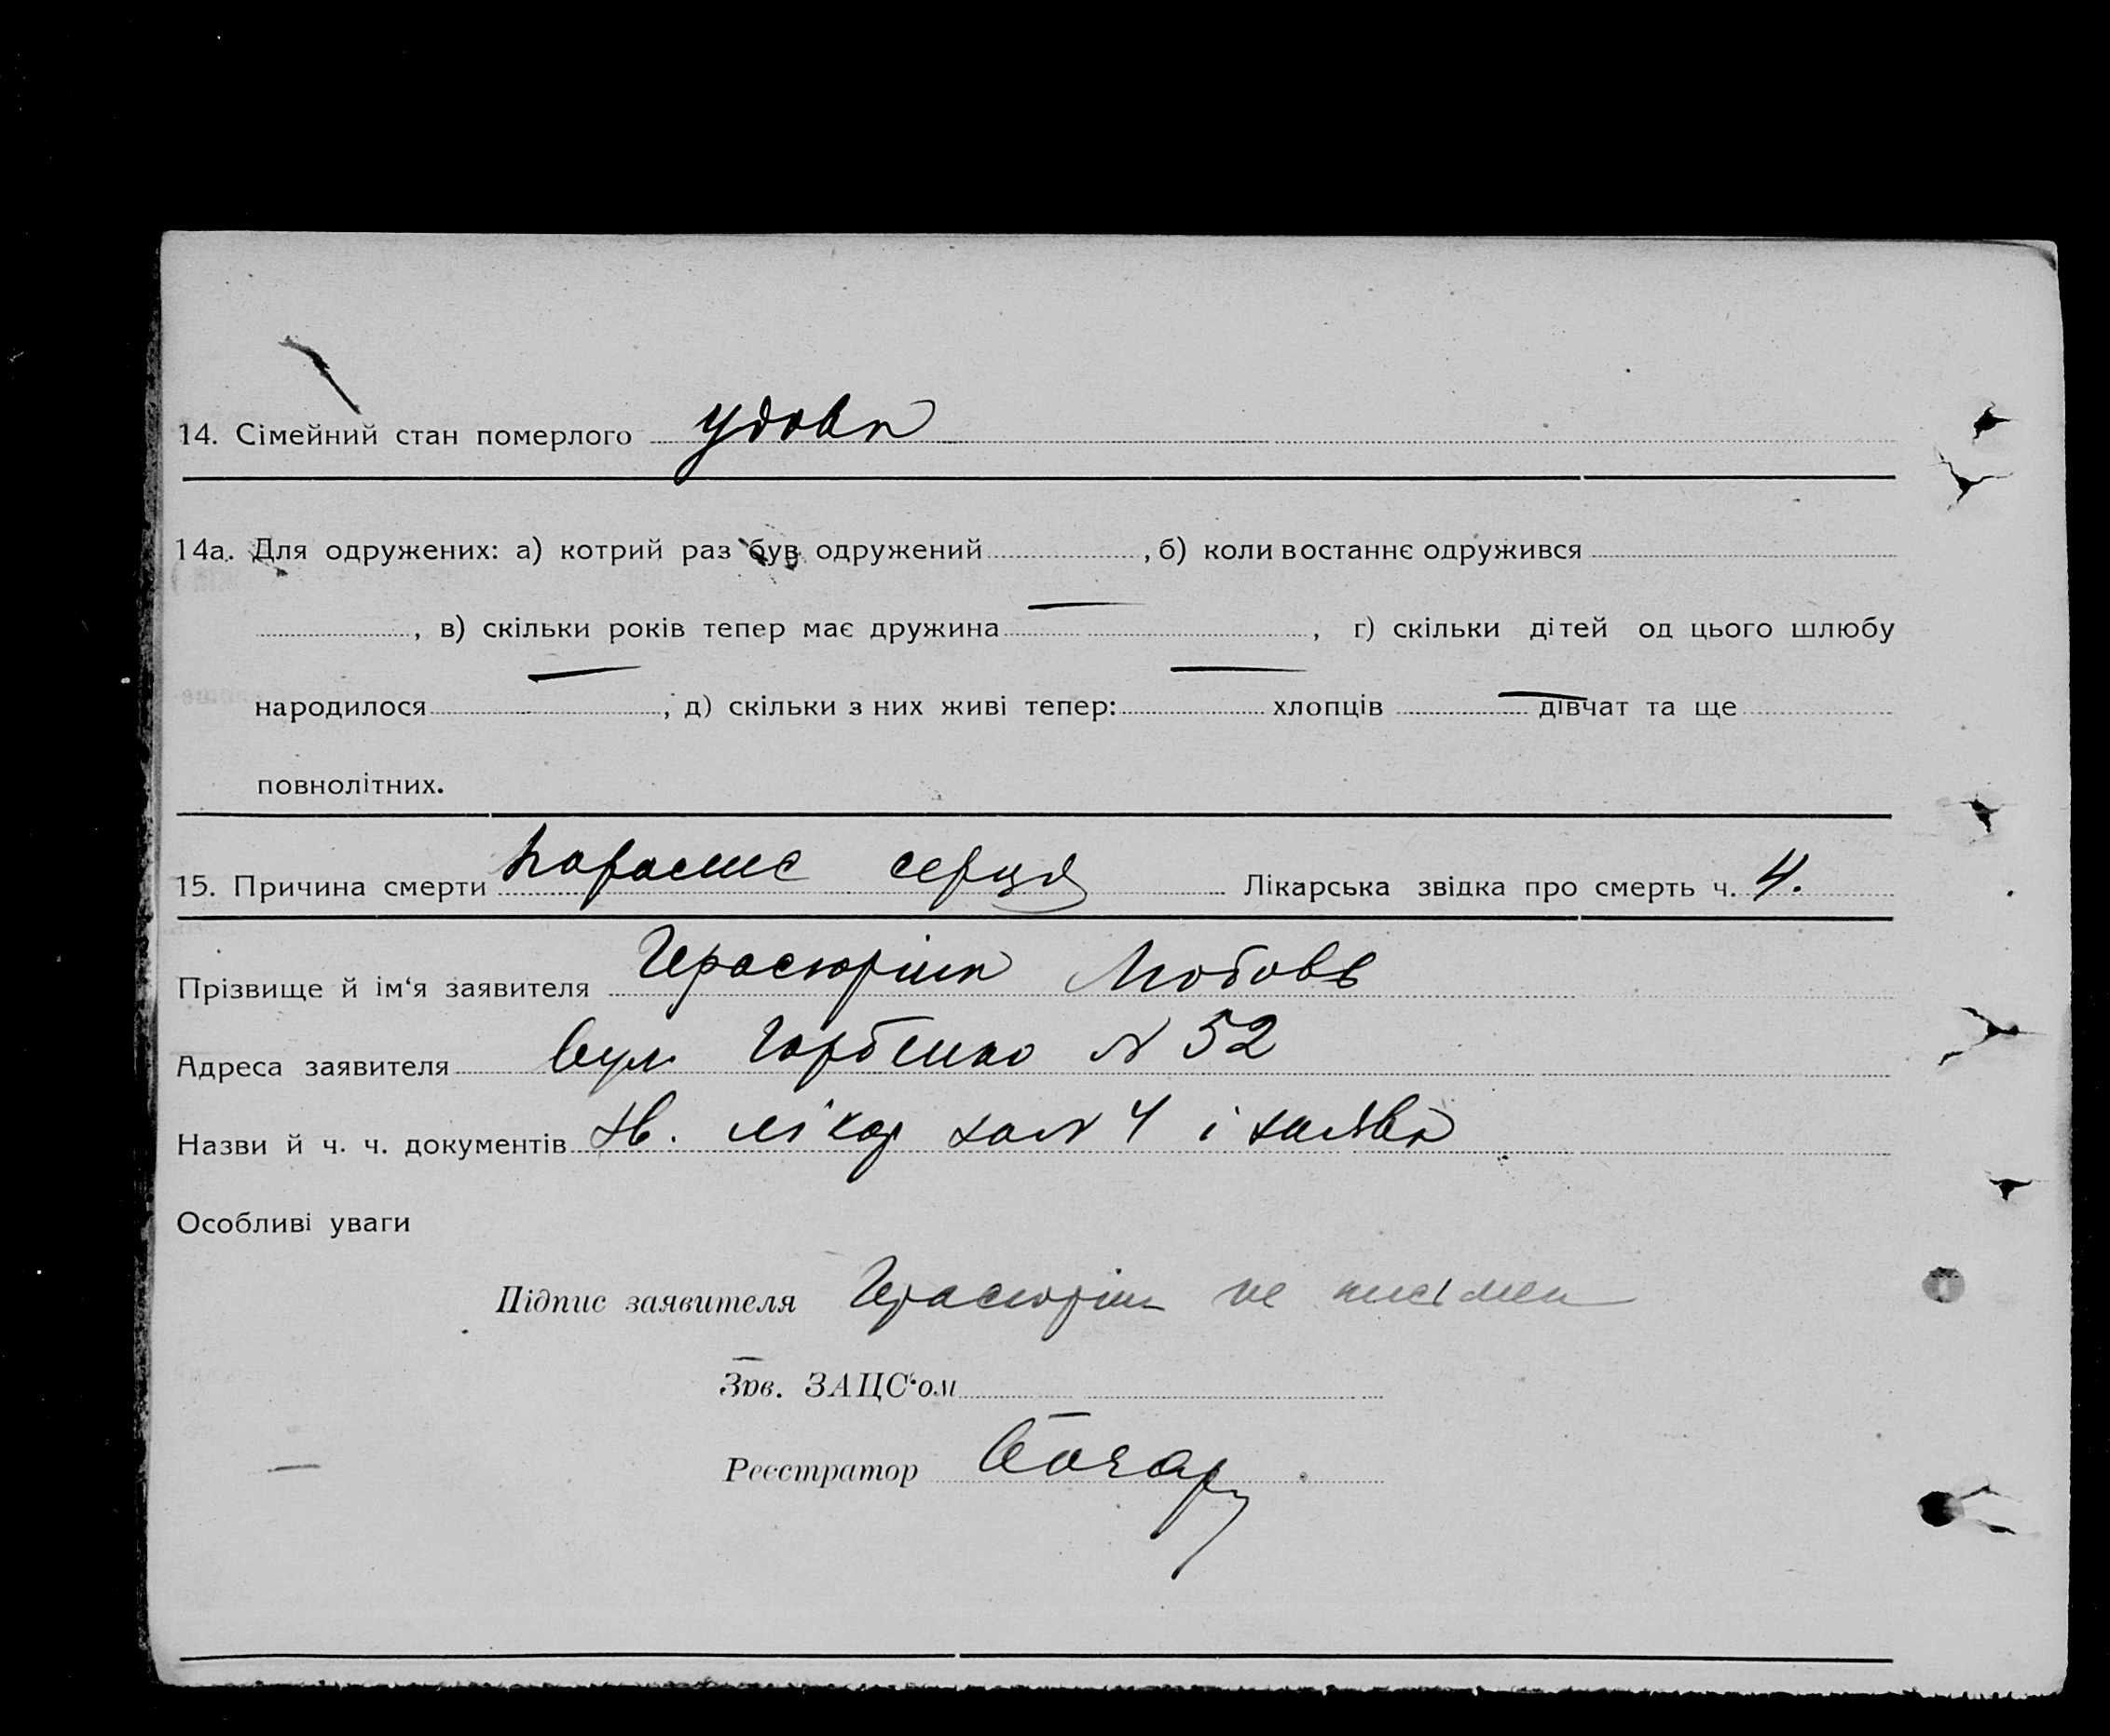 14. Сімейний стан померлого удова
14а. Для одружених: а) котрий раз був одружений , б) коли востаннє одружився
, в) скільки років тепер має дружина — , г) скільки дітей од цього шлюбу
народилося — , д) скільки з них живі тепер: — хлопців — дівчат та ще
повнолітних.
15. Причина смерти порас серця Лікарська звідка про смерть ч. 4.
Прізвище й ім‘я заявителя Любовь
Адреса заявителя вул Горбенко № 52
Назви й ч. ч. документів лікар за № 4 і заява
Особливі уваги
Підпис заявителя не письмен
Зав. ЗАЦС‘ом —
Реєстратор